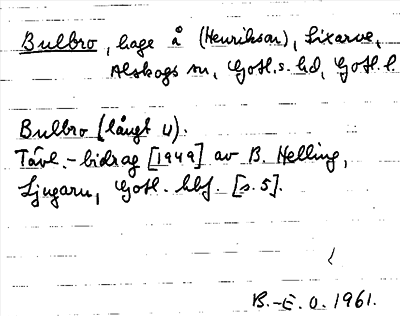 Bulbro, hage å (Henrikson), Lixarve,
Alskogs sn, Gotl. s. hd, Gotl. l.
Bulbro (långt u).
Tävl.-bidrag [1949] av B. Helling,
Ljugarn, Gotl. hbf. [s. 5].
B.-E. O. 1961.